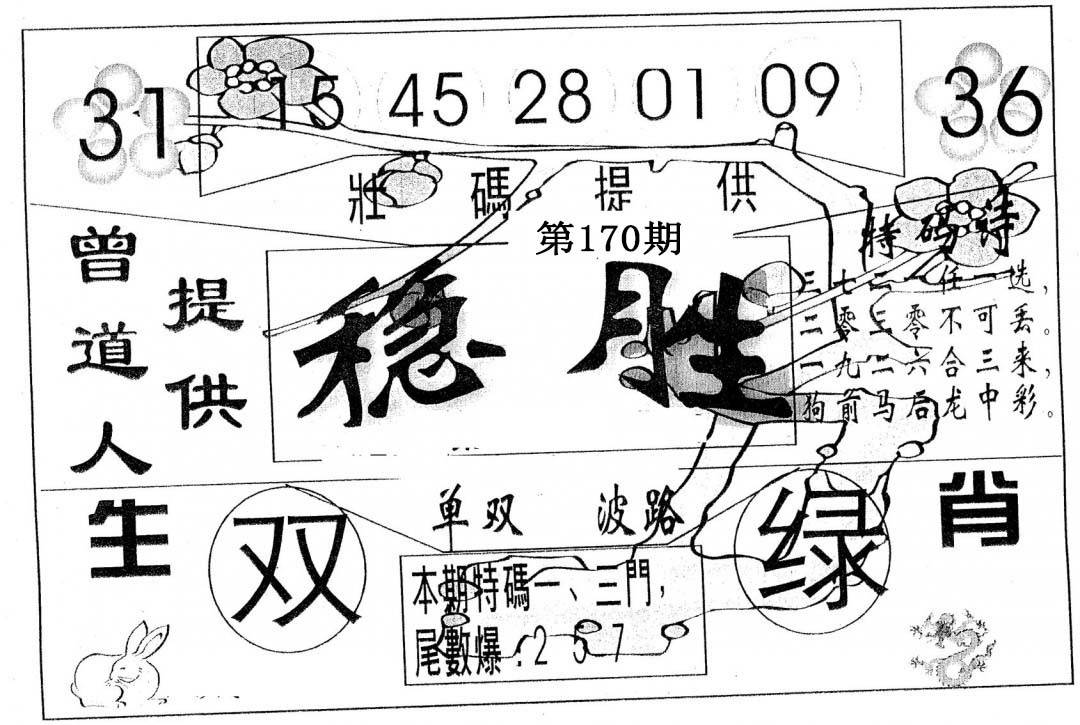 31 15 45 28 01 09 36
壯碼提供
第170期
特码诗
曾道人
提供
稳胜
三七二一任一选，
二零三零不可丢。
一九二六合三来，
狗前马后龙中彩。
单双 波路
生肖
双
绿
本期特碼一、三門，
尾數爆：2 5 7